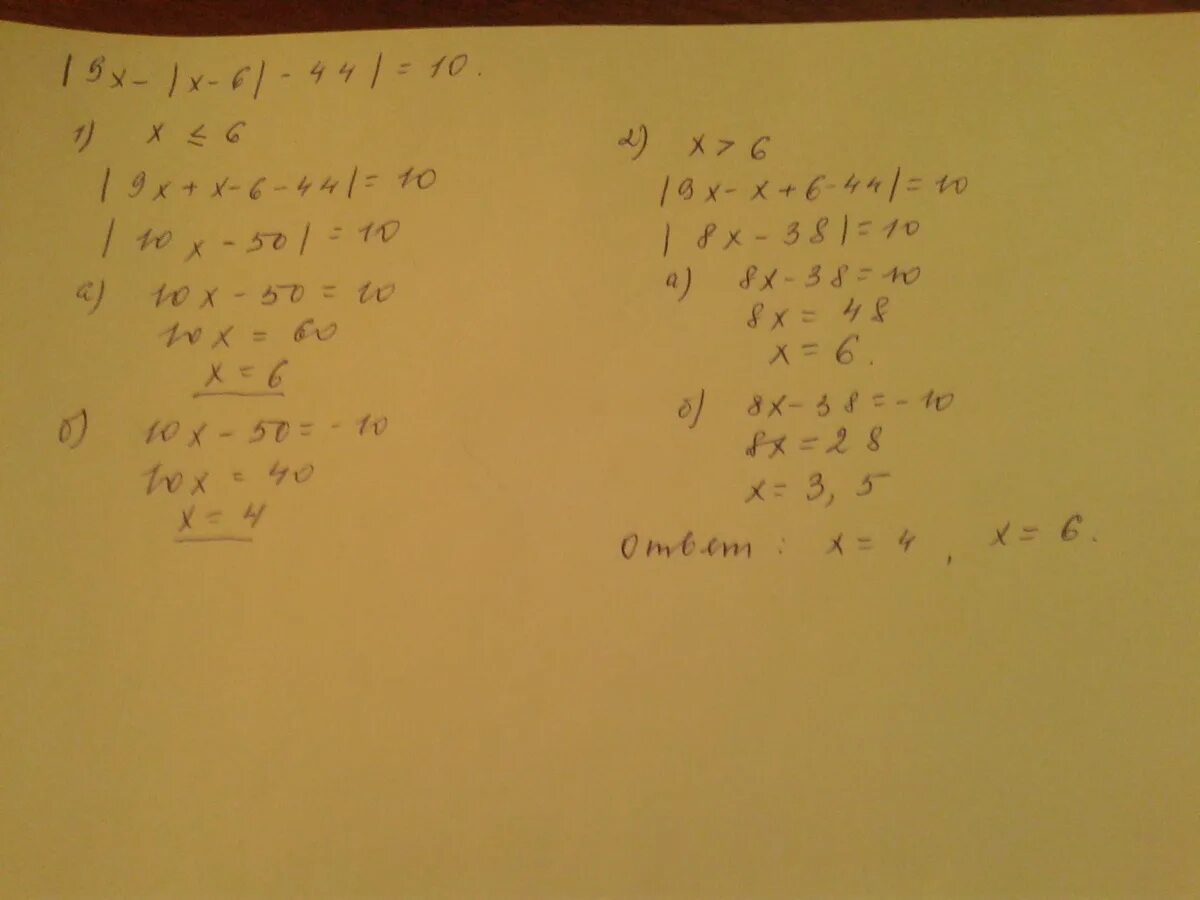 |9x-|x-6|-44|=10.
1) x ≤ 6
|9x+x-6-44|=10
|10x-50|=10
а) 10x-50=10
10x=60
x=6
б) 10x-50=-10
10x=40
x=4
2) x>6
|9x-x+6-44|=10
|8x-38|=10
а) 8x-38=10
8x=48
x=6.
б) 8x-38=-10
8x=28
x=3,5
Ответ: x=4, x=6.